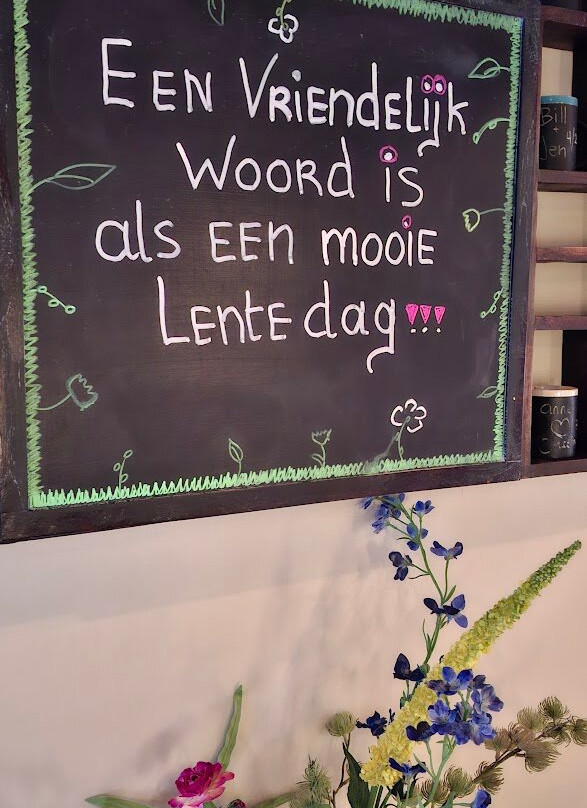 EEN VRIENDELIJK
WOORD is
als EEN MOOIE
LENTE dag!!!
Bill
+
Jen